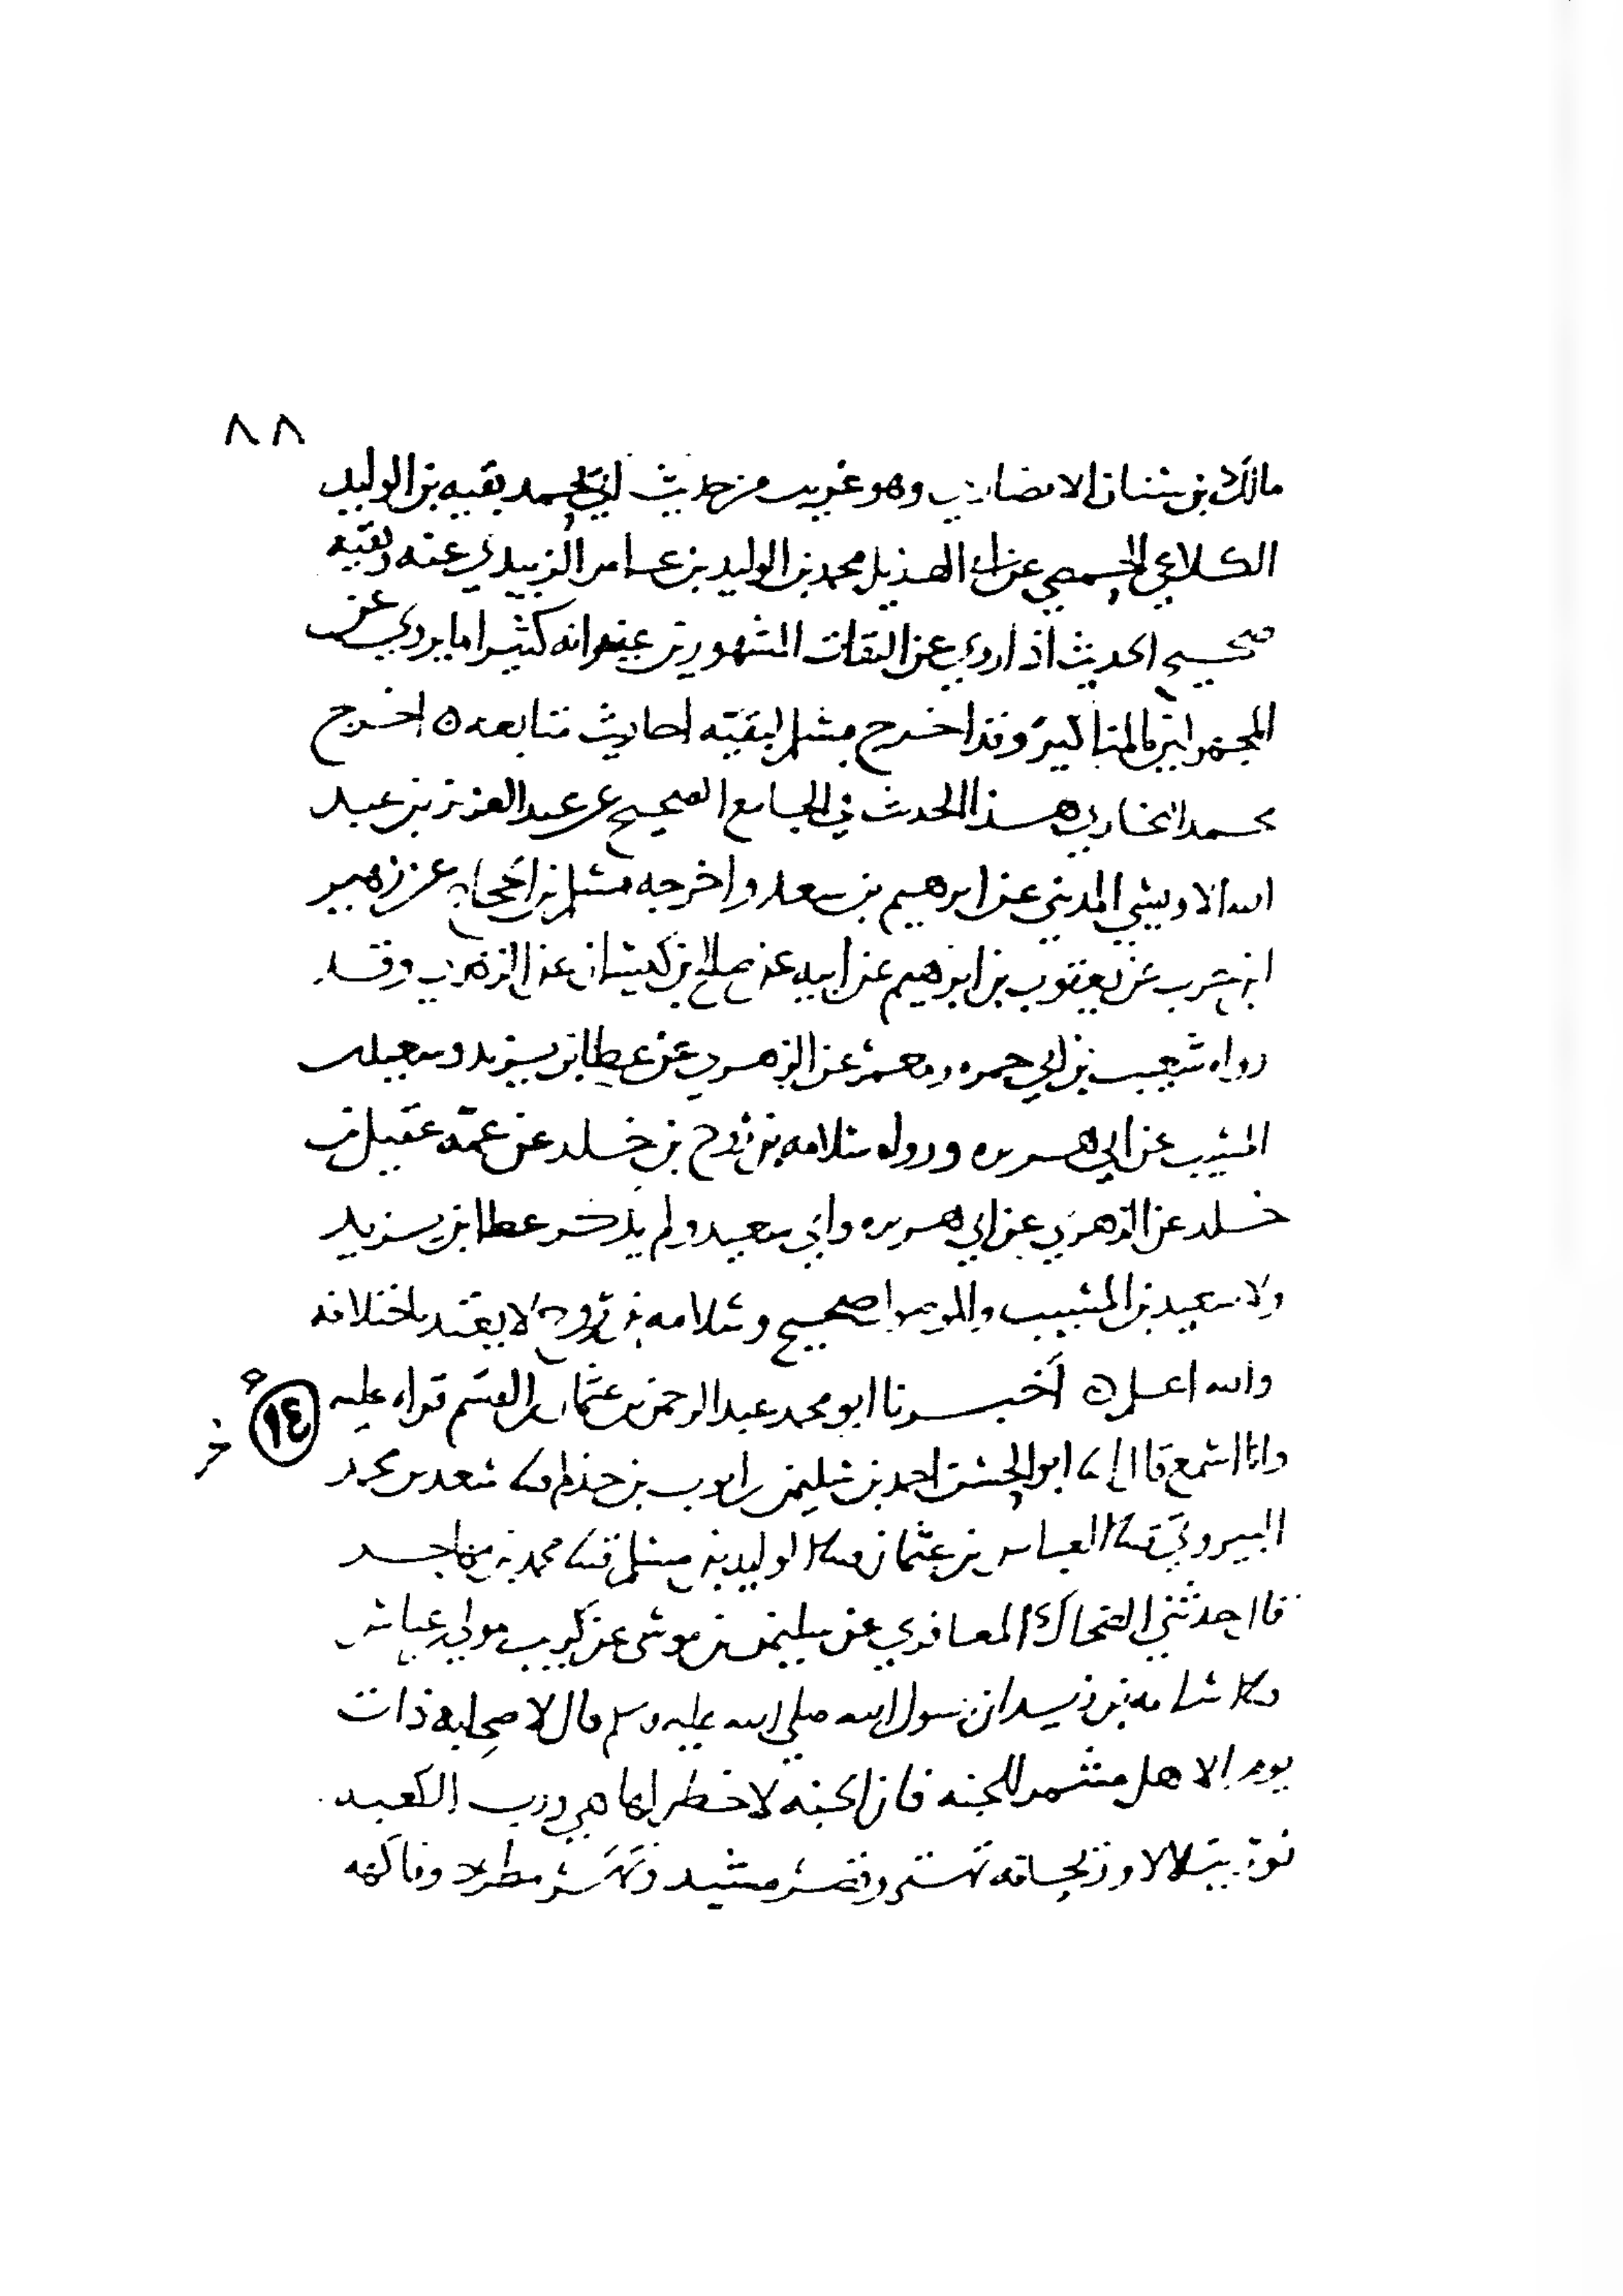 ٨٨
مالك بن سنان الانصاري وهو غريب من حديث ابي يحمد بقيه بن الوليد
الكلاعي الحمصي عن ابي الهذيل محمد بن الوليد بن عامر الزبيدي عنه وبقيه
صحيح الحديث اذا روي عن الثقات المشهورين غير انه كثيرا ما يروي عن
المجهولين المناكير وقد اخرج مسلم لبقيه احاديث متابعه ۞ اخرج
محمد البخاري هذا الحديث في الجامع الصحيح عن عبد العزيز بن عبد
الله الاويسي المديني عن ابرهيم بن سعد واخرجه مسلم بن الحجاج عن زهير
ابن حرب عن يعقوب بن ابرهيم عن ابيه عن صالح بن كيسان عن الزهري وقد
رواه شعيب بن ابي حمزه ومعمر عن الزهري عن عطا بن يزيد وسعيد بن
المسيب عن ابي هريره ورواه سلامه بن روح بن خلد عن عمه عقيل بن
خلد عن الزهري عن ابي هريره وابي سعيد ولم يذكر عطا بن يزيد
ولا سعيد بن المسيب والموصوا صحيح وسلامه بن روح لا يعتد باختلافه
والله اعلم ۞ اخبرنا ابو محمد عبد الرحمن بن عثمان بن القسم قراه عليه
١٤
وانا اسمع قال ثنا ابو الحسن احمد بن سليمن بن ايوب بن حذلم ثنا سعد بن محمد
البيروتي ثنا العباس بن عثمان ثنا الوليد بن مسلم ثنا محمد بن مهاجر
قال حدثني الضحاك المعافري عن سليمن بن موسى عن كريب مولى بن عباس
ثنا اسامه بن زيد ان رسول الله صلى الله عليه وسلم قال لاصحابه ذات
يوم الا هل مشمر للجنه فان الجنه لا خطر لها هي ورب الكعبه
نور يتلالا وريحانه تهتز وقصر مشيد ونهر مطرد وفاكهه